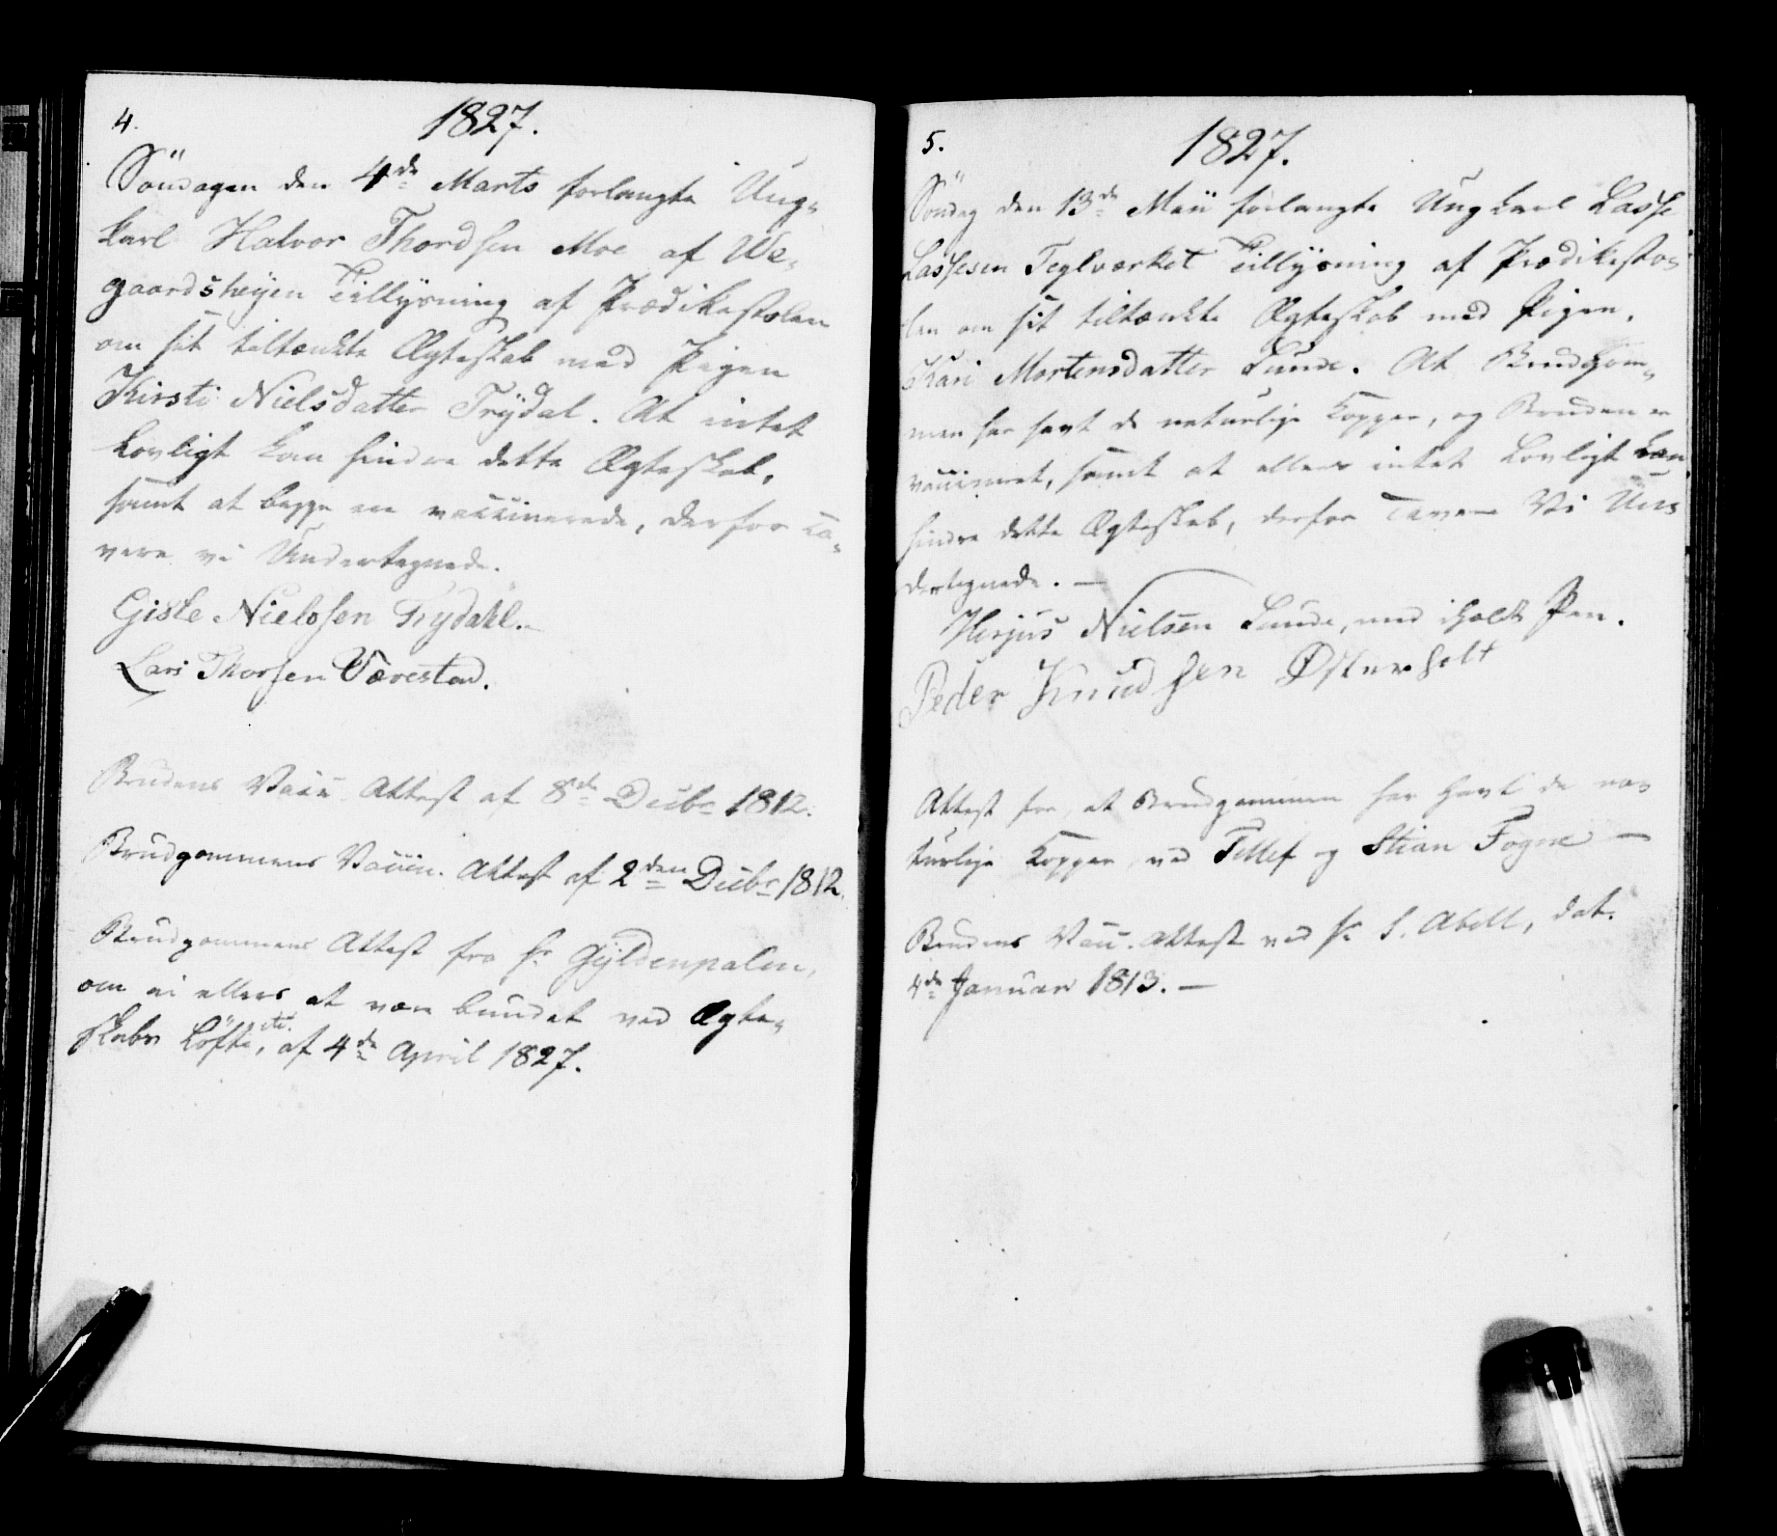 4.
1827.
Söndagen den 4de Marts forlangte Ung-
karl Halvor Thordsen Moe af We-
gaardsheÿen Tillÿsning af Prædikestolen
om sit tiltænkte Ægteskab med Pigen
Kirsti Nielsdatter Trÿdal. At intet
Lovligt kan hindre dette Ægteskab,
samt at begge ere vaccinerede, derfor ca-
vere vi Undertegnede.
Gisle Nielssen Trydahl.
Lars ThorsenVærestad.
Brudens Vacc. Attest af 8de Decbr 1812.
Brudgommens Vaccin. Attest af 2den Decbr 1812.
Brudgommens Attest fra Hr Gÿldenpalm,
om ei ellers at være bundet ved Ægte-
skabs Löfte, etc. af 4de April 1827.
5.
1827.
Söndag den 13de Maii forlangte Ungkarl Lasse
Lassesen Teglværket Tillÿsning af Prædikesto-
len om sit tiltænkte Ægteskab med Pigen,
Kari Mortensdatter Lunde. At Brudgom-
men har havt de naturlige Kopper, og Bruden er
vaccineret, samt at ellers intet Lovligt kan
hindre dette Ægteskab, derfor cavere Vi Un-
dertegnede. —
Herjus Nielsen Lunde, med iholdt Pen.
Peder Knudsen Østerholt
Attest for, at Brudgommen har havt de na-
turlige Kopper, ved Tellef og Stian Fogne —
Brudens Vacc. Attest ved Hr S. Abell, dat.
4de Januar 1813. —